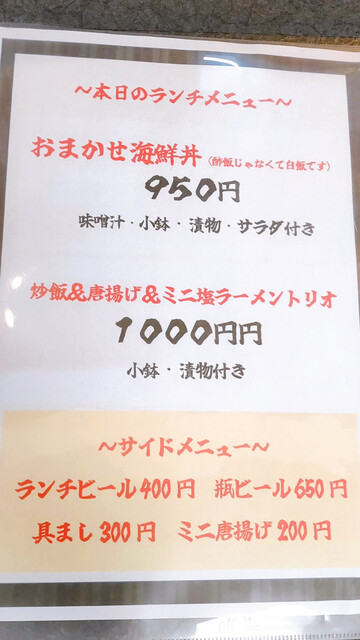 ～本日のランチメニュー～
おまかせ海鮮丼（酢飯じゃなくて白飯です）
950円
味噌汁・小鉢・漬物・サラダ付き
炒飯&唐揚げ&ミニ塩ラーメントリオ
1000円円
小鉢・漬物付き
～サイドメニュー～
ランチビール400円 瓶ビール650円
具まし300円 ミニ唐揚げ200円